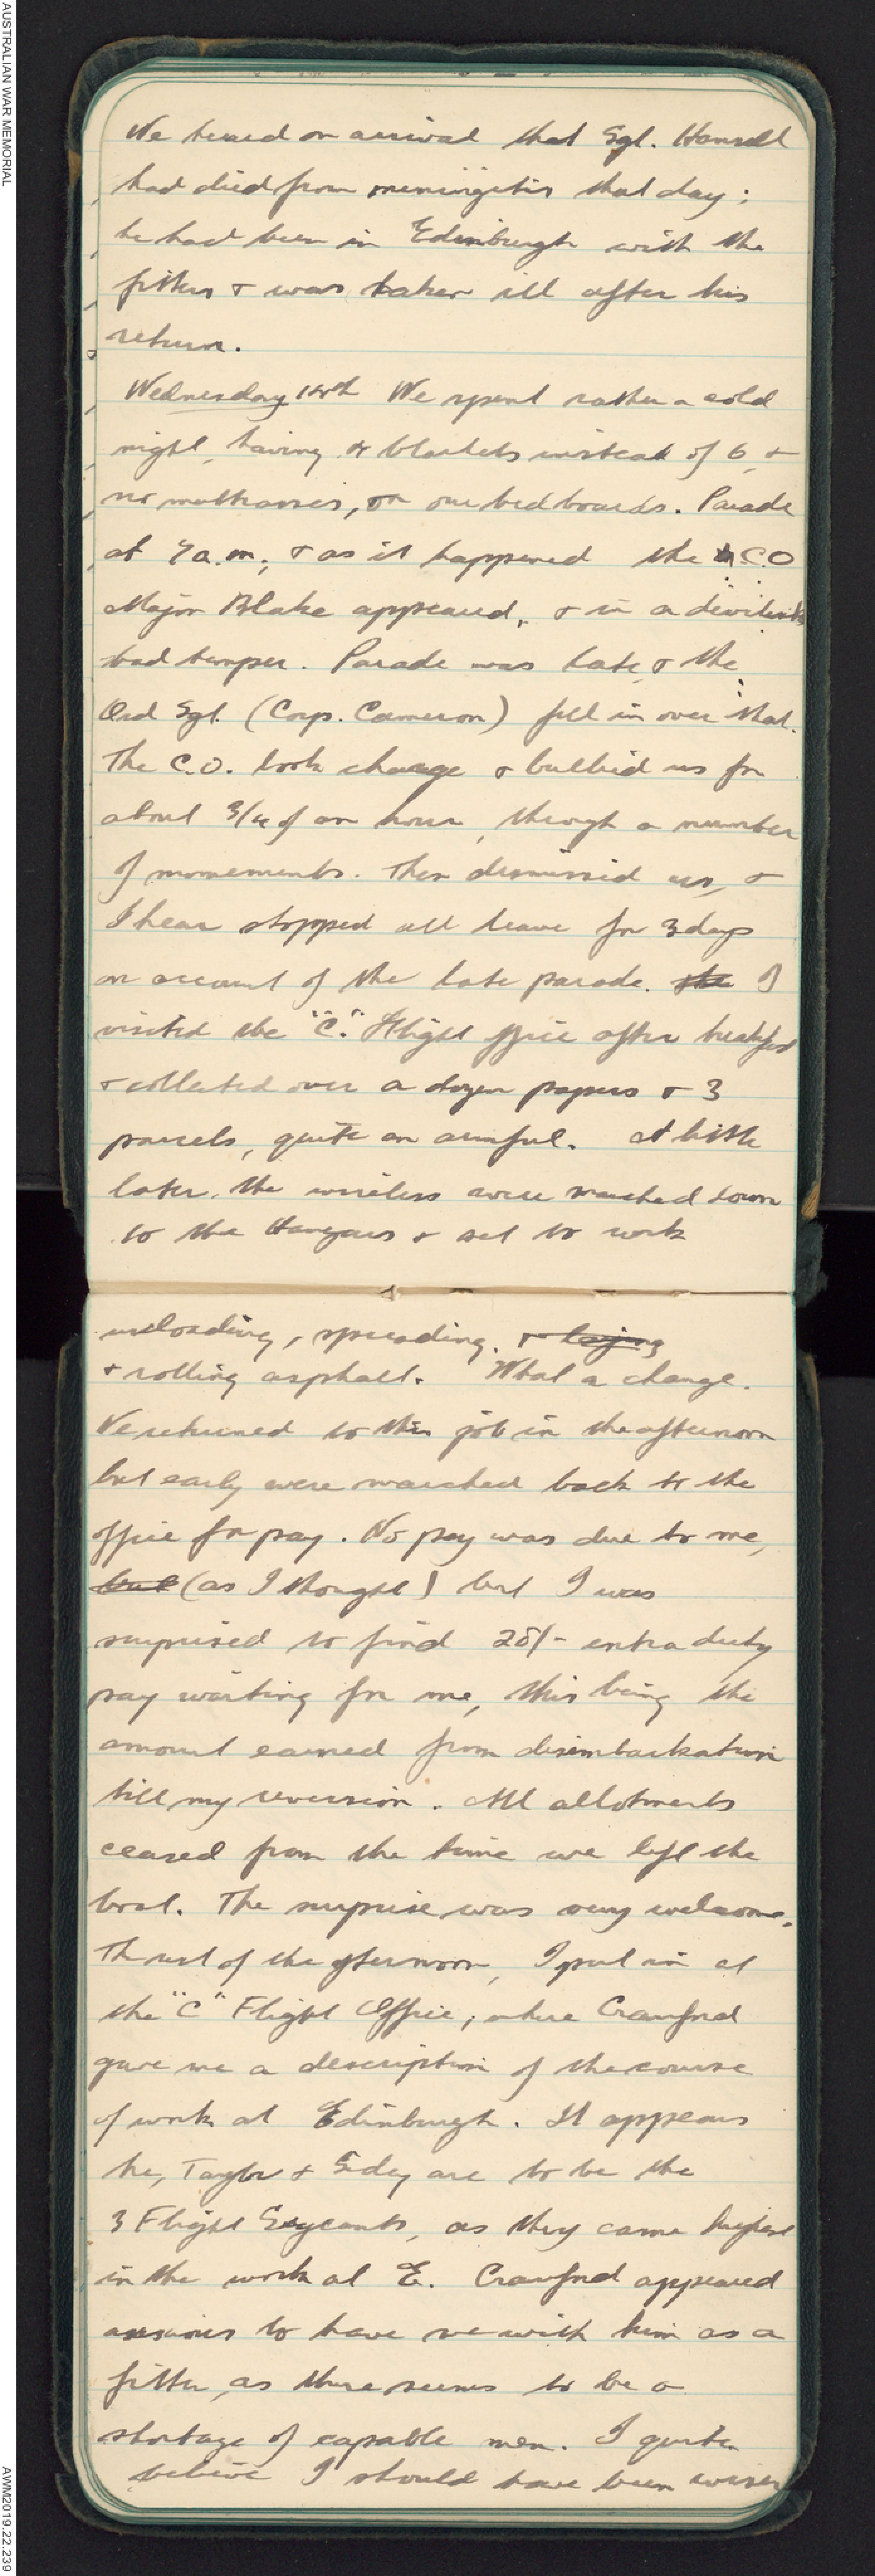 AUSTRALIAN WAR MEMORIAL
We heard on arrival that Sgt. Hansell
had died from meningitis that day;
he had been in Edinburgh with the
fitters & was taken ill after his
return.
Wednesday 14th We spent rather a cold
night, having 4 blankets instead of 6, &
no mattrasses, on our bed boards. Parade
at 7 a.m., & as it happened the C.O
Major Blake appeared, & in a devilish
bad temper. Parade was late, & the
Ord Sgt. (Corp. Cameron) fell in over that.
The C.O. took charge & bullied us for
about 3/4 of an hour, through a number
of movements. Then dismissed us, &
I hear stopped all leave for 3 days
on account of the late parade. the I
visited the "C." Flight office after breakfast
& collected over a dozen papers & 3
parcels, quite an armful. A little
later, the wireless were marched down
to the Hangars & set to work
unloading, spreading, & laying
& rolling asphalt. What a change.
We returned to this job in the afternoon
but early were marched back to the
office for pay. No pay was due to me,
but (as I thought) but I was
surprised to find 28/- extra duty
pay waiting for me, this being the
amount earned from disembarkation
till my reversion. All allotments
ceased from the time we left the
boat. The surprise was very welcome.
The rest of the afternoon, I put in at
the "C" Flight Office, where Crawford
gave me a description of the course
of work at Edinburgh. It appears
he, Taylor & are to be the
3 Flight Sergeants, as they came highest
in the work at E. Crawford appeared
anxious to have me with him as a
fitter, as there seems to be a
shortage of capable men. I quite
believe I should have been wiser
AWM2019.22.239